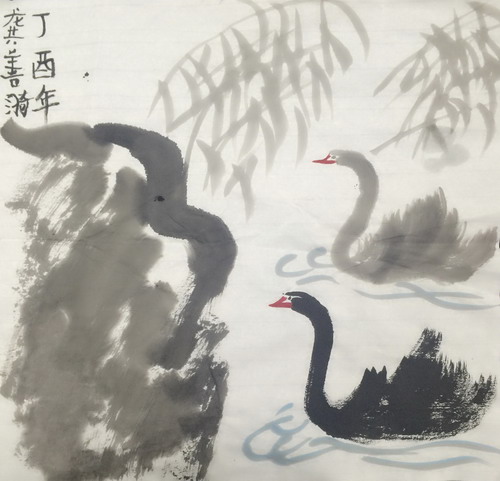 丁酉年
龚善漪